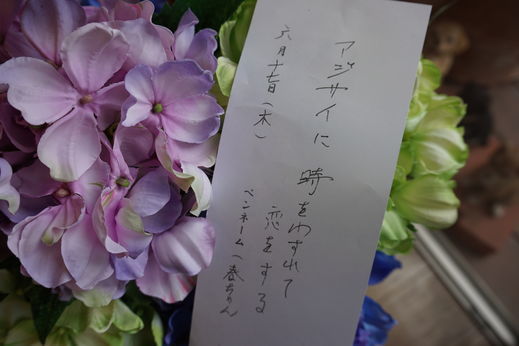 アジサイに
時をわすれて
恋をする
六月十七日(木)
ペンネーム(春ちゃん